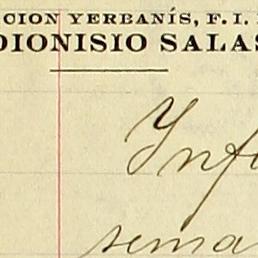 CION YERBANÍS, F. I.
DIONISIO SALAS
Inf
sema